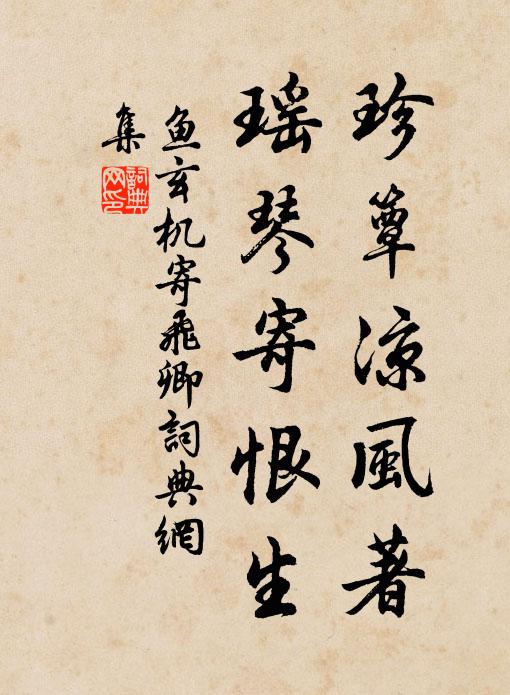 珍簟凉風著
瑶琴寄恨生
鱼玄机寄飛卿詞典網
集
詞典
网印